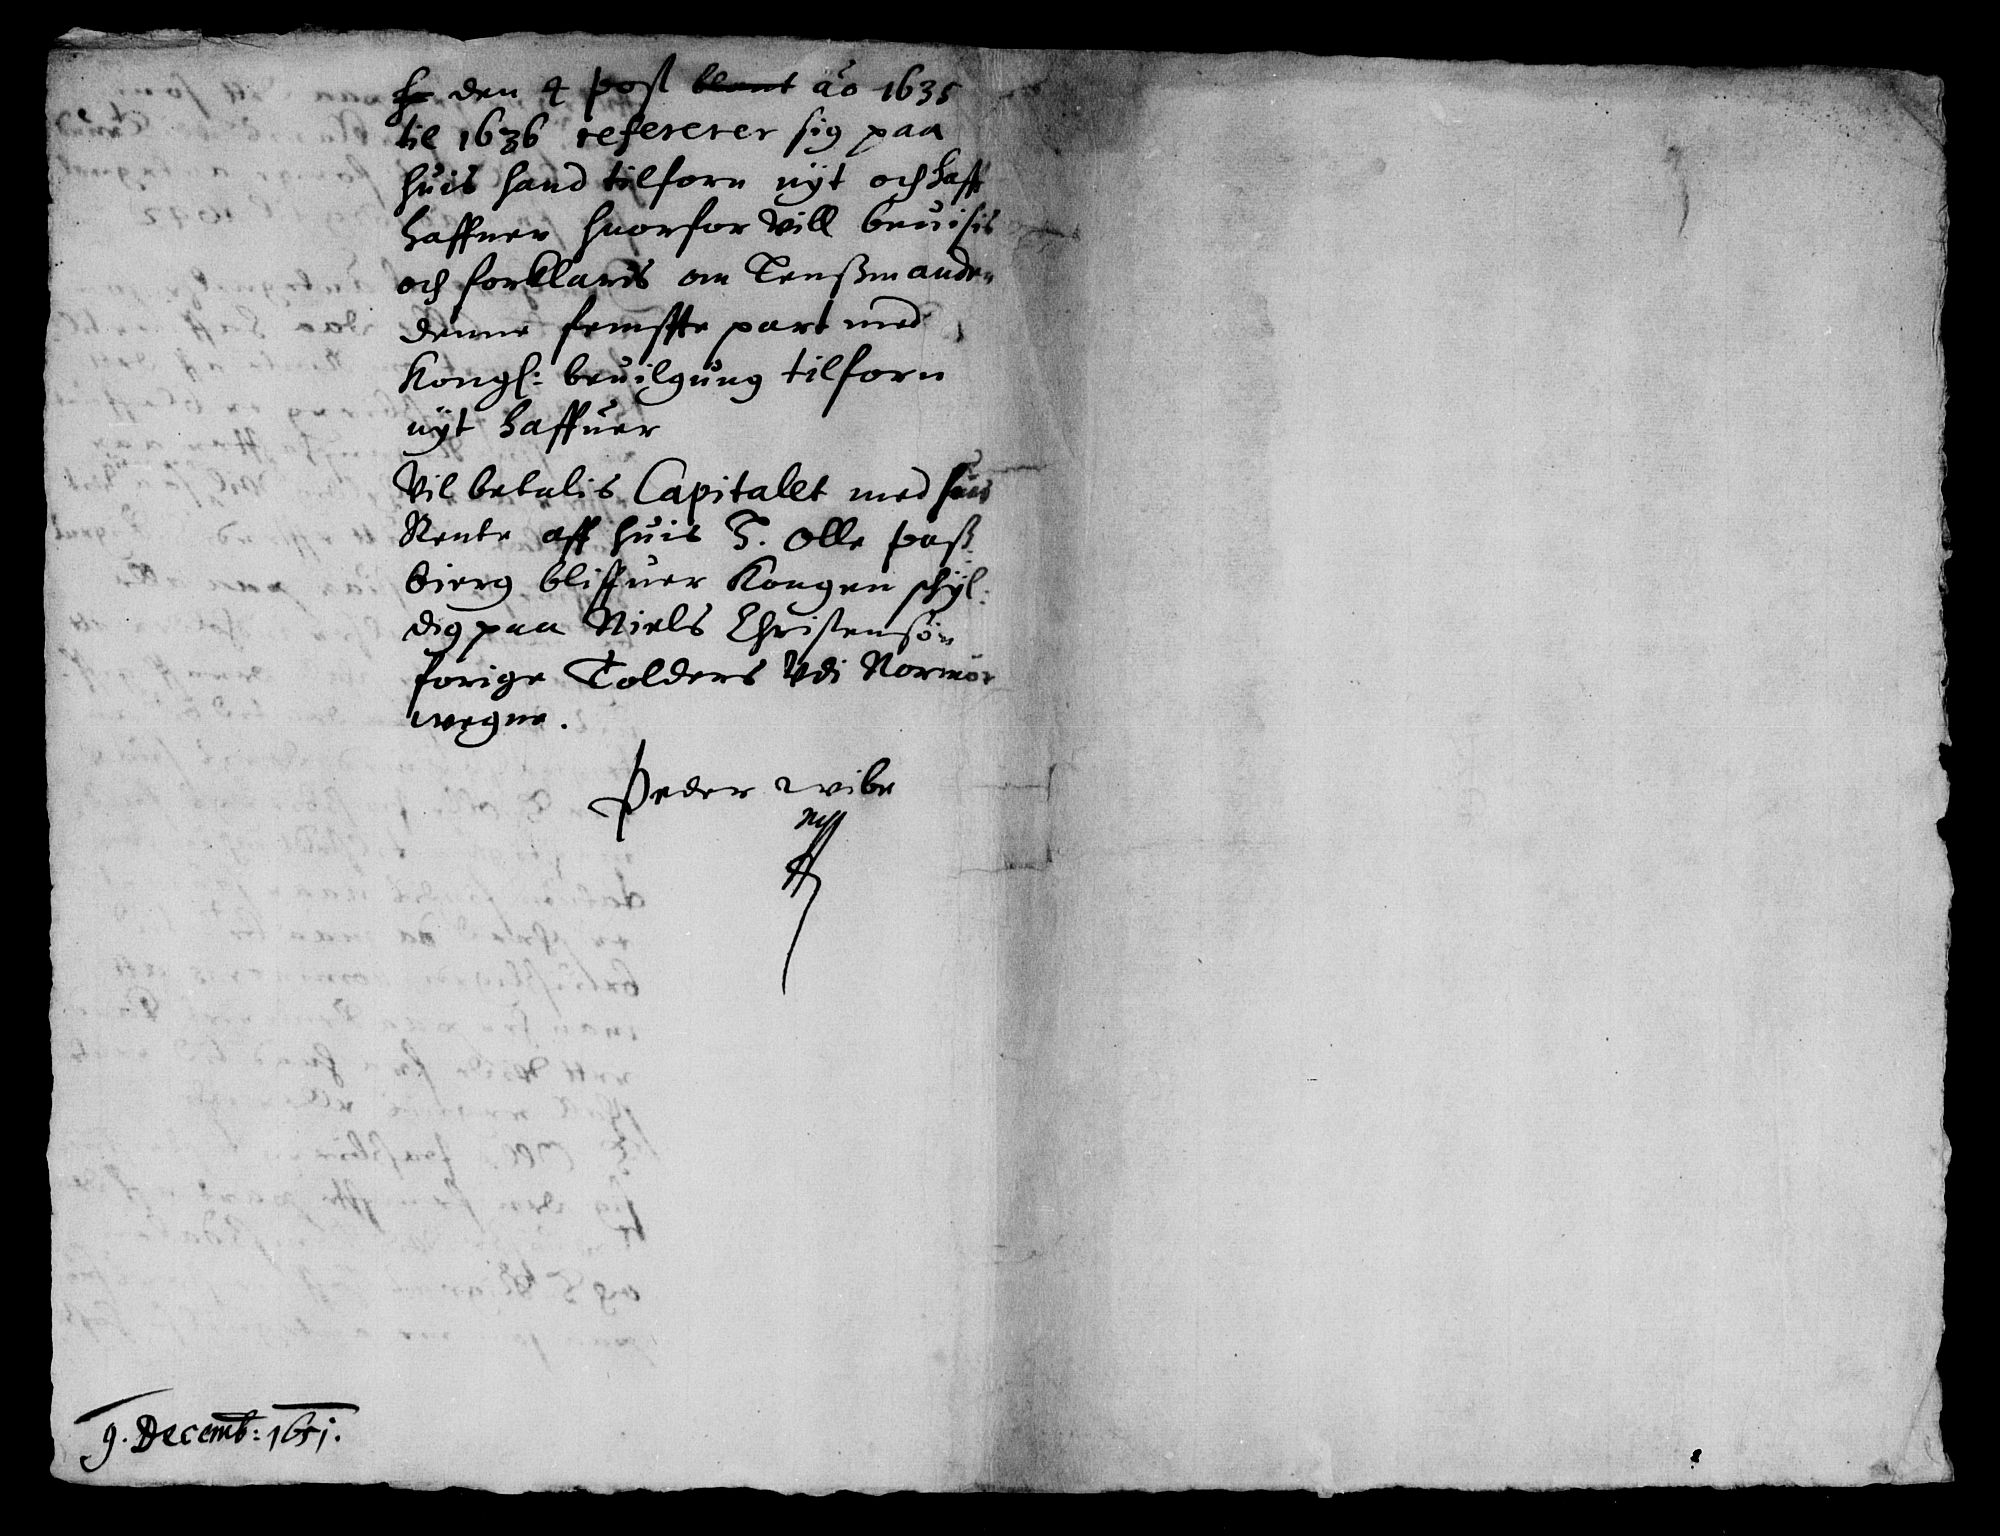 den 4 post åo 1635
til 1636 refererer sig paa
huis hand tilforn nÿt och haff
haffuer huorfor vill beuisis
och forklaris om Lensßmanden
denne femffte part med
Kongl: beuilgung tilforn
nÿt haffuer
Vil betalis Capitalet med
Rente aff huis S. Olle paß
bierg bliffuer Kongen schÿl:
dig paa Niels Christensøn
forige Tolders Vdi Normør
wegne.
Peder wibe
9. Decemb: 1651.